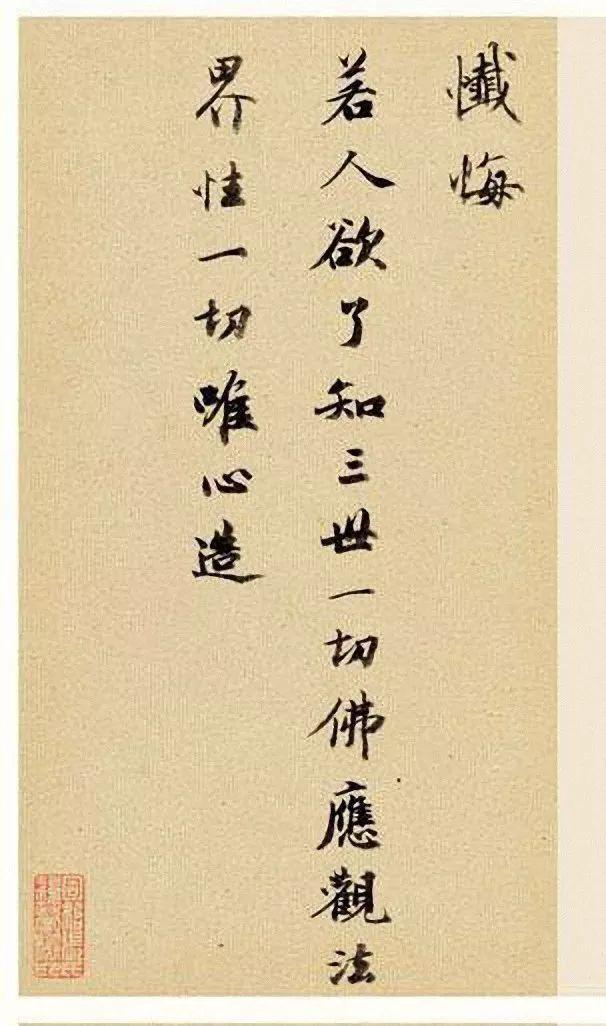 懺悔
若人欲了知三世一切佛應觀法
界性一切唯心造